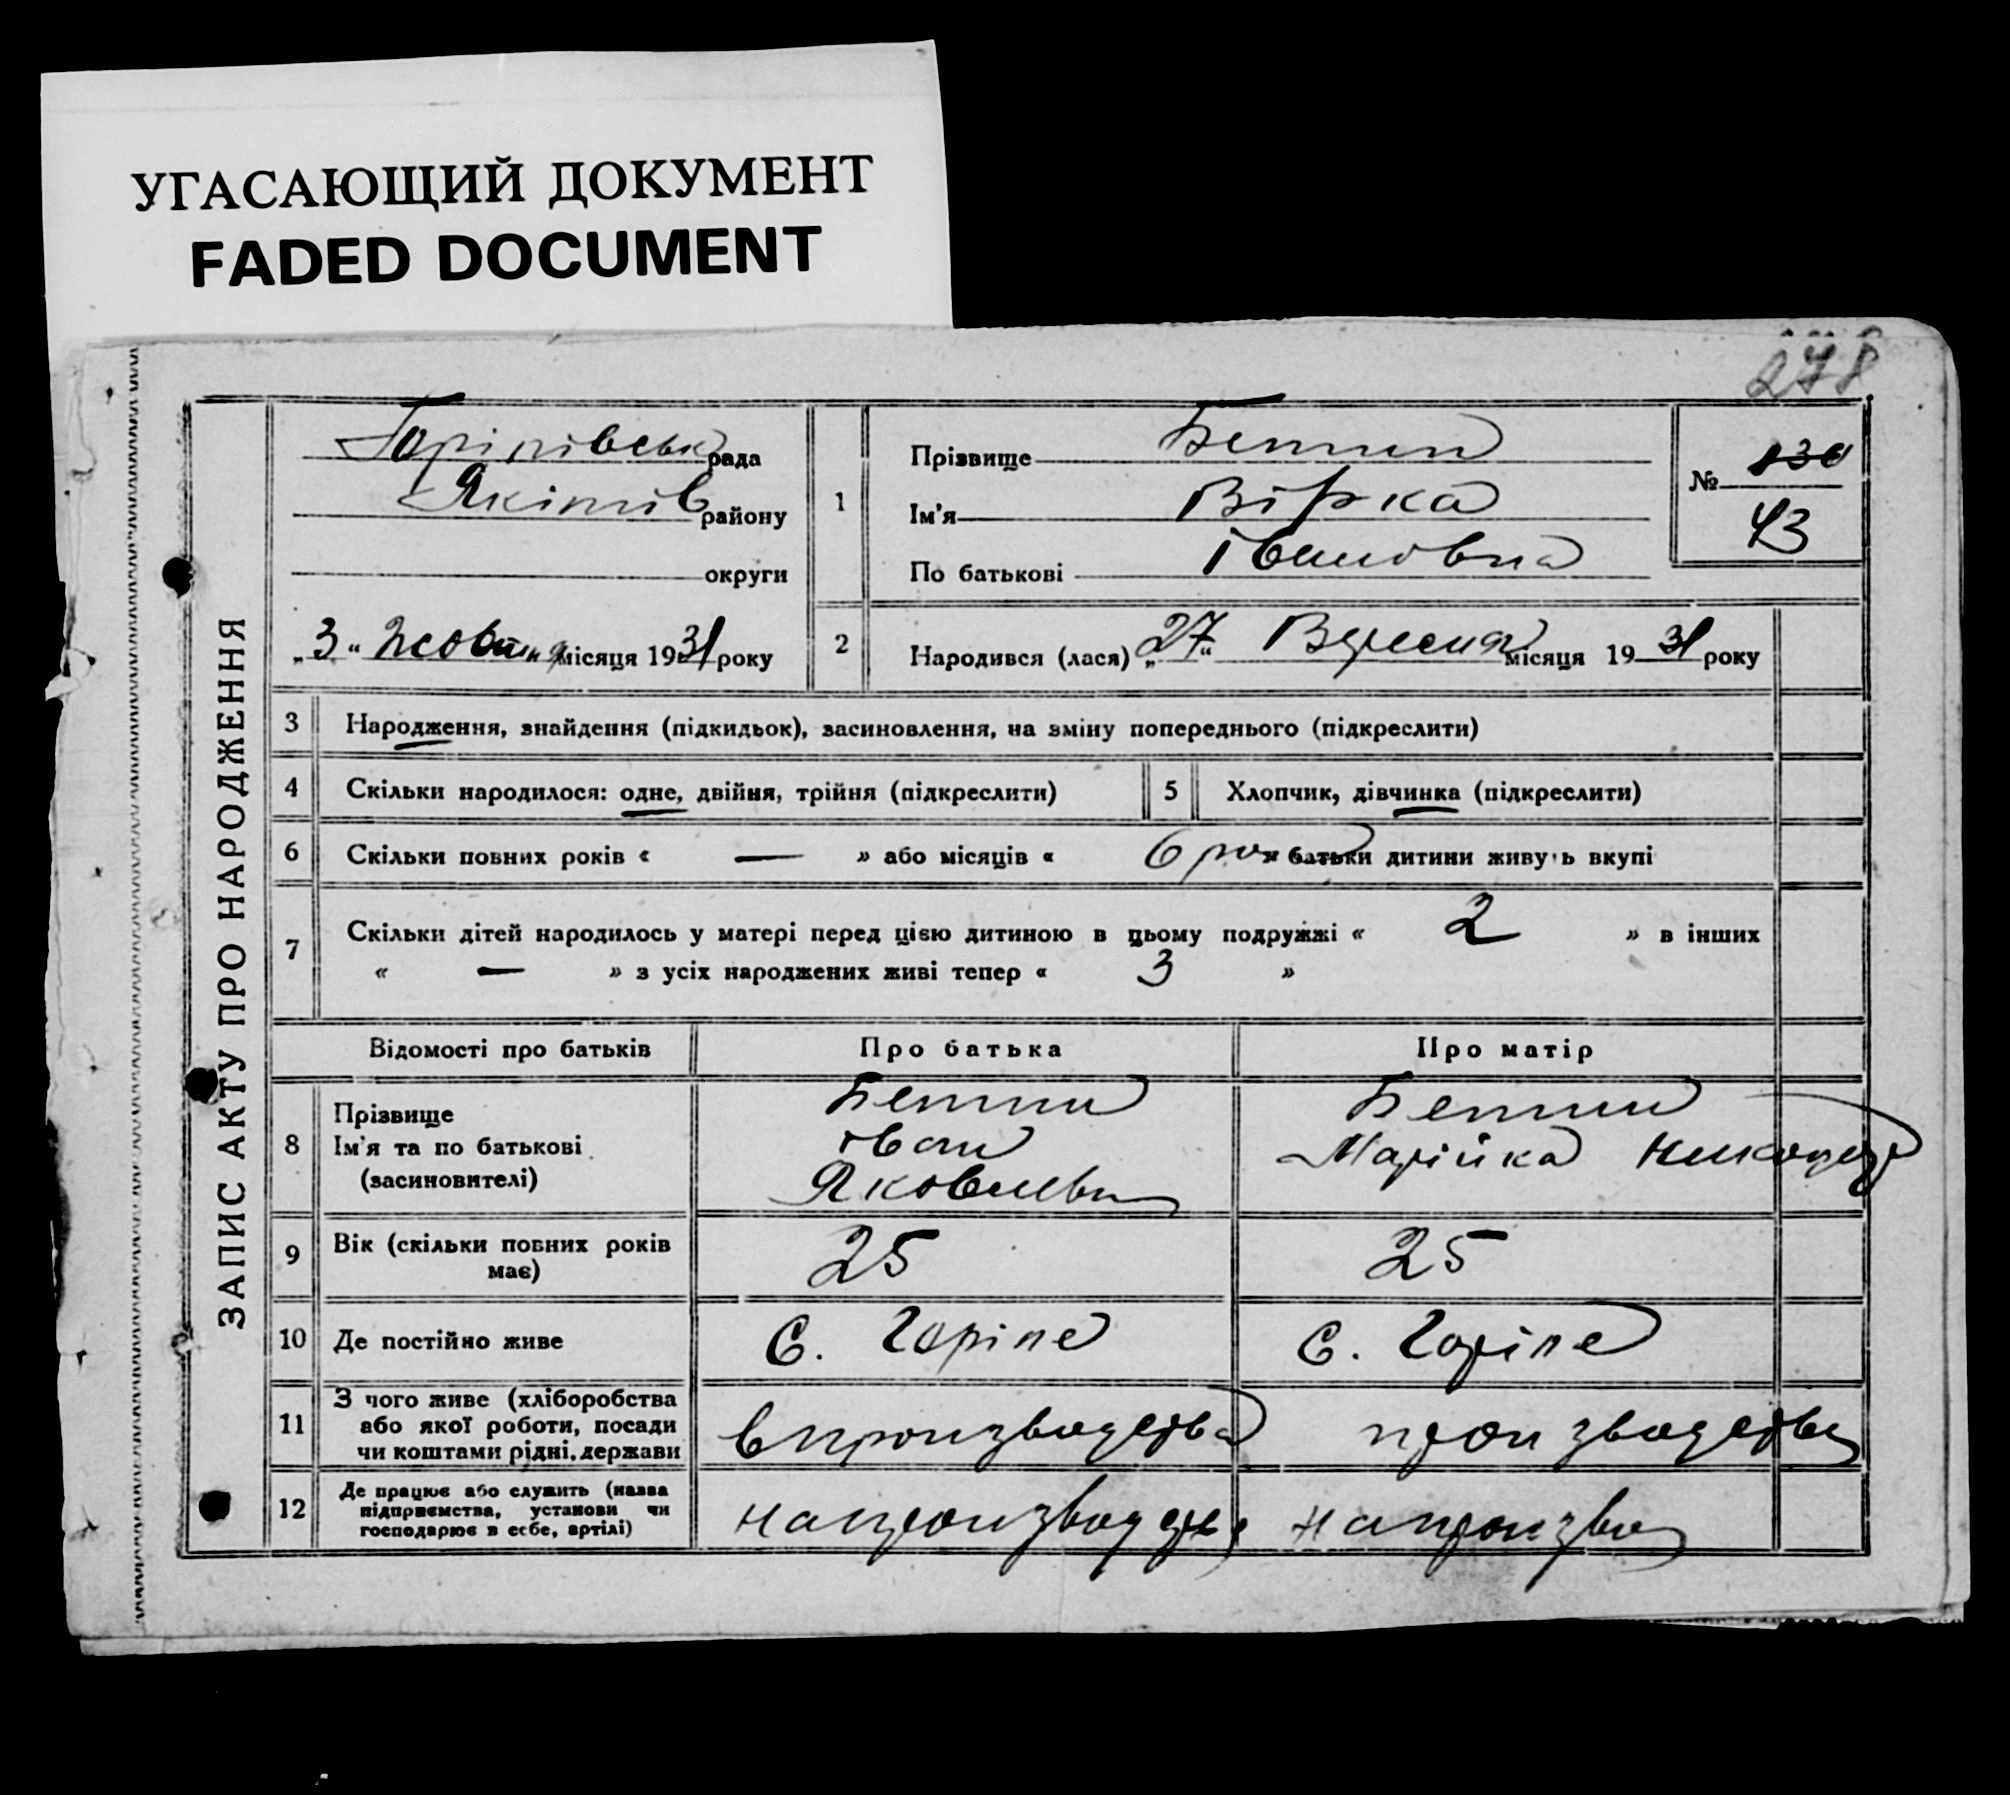 УГАСАЮЩИЙ ДОКУМЕНТ
FADED DOCUMENT
278
ЗАПИС АКТУ ПРО НАРОДЖЕННЯ
рада
району
округи
„3“ Жовтня місяця 1931 року
1
Прізвище
Ім'я Вірка
По батькові Івановна
№ 130
43
2
Народився (лася) „27“ Вересня місяця 1931 року
3
Народження, знайдення (підкидьок), засиновлення, на зміну попереднього (підкреслити)
4
Скільки народилося: одне, двійня, трійня (підкреслити)
5
Хлопчик, дівчинка (підкреслити)
6
Скільки повних років « — » або місяців « 6 рок » батьки дитини живуть вкупі
7
Скільки дітей народилось у матері перед цією дитиною в цьому подружжі « 2 » в інших
« — » з усіх народжених живі тепер « 3 »
Відомості про батьків
Про батька
Про матір
8
Прізвище
Ім'я та по батькові
(засиновителі)
Іван
Яковлевич
Марійка
9
Вік (скільки повних років
має)
25
25
10
Де постійно живе
С. Горіпе
С. Горіпе
11
З чого живе (хліборобства
або якої роботи, посади
чи коштами рідні, держави
в производства
производства
12
Де працює або служить (назва
підприємства, установи чи
господарює в себе, артілі)
на производстве
на произво